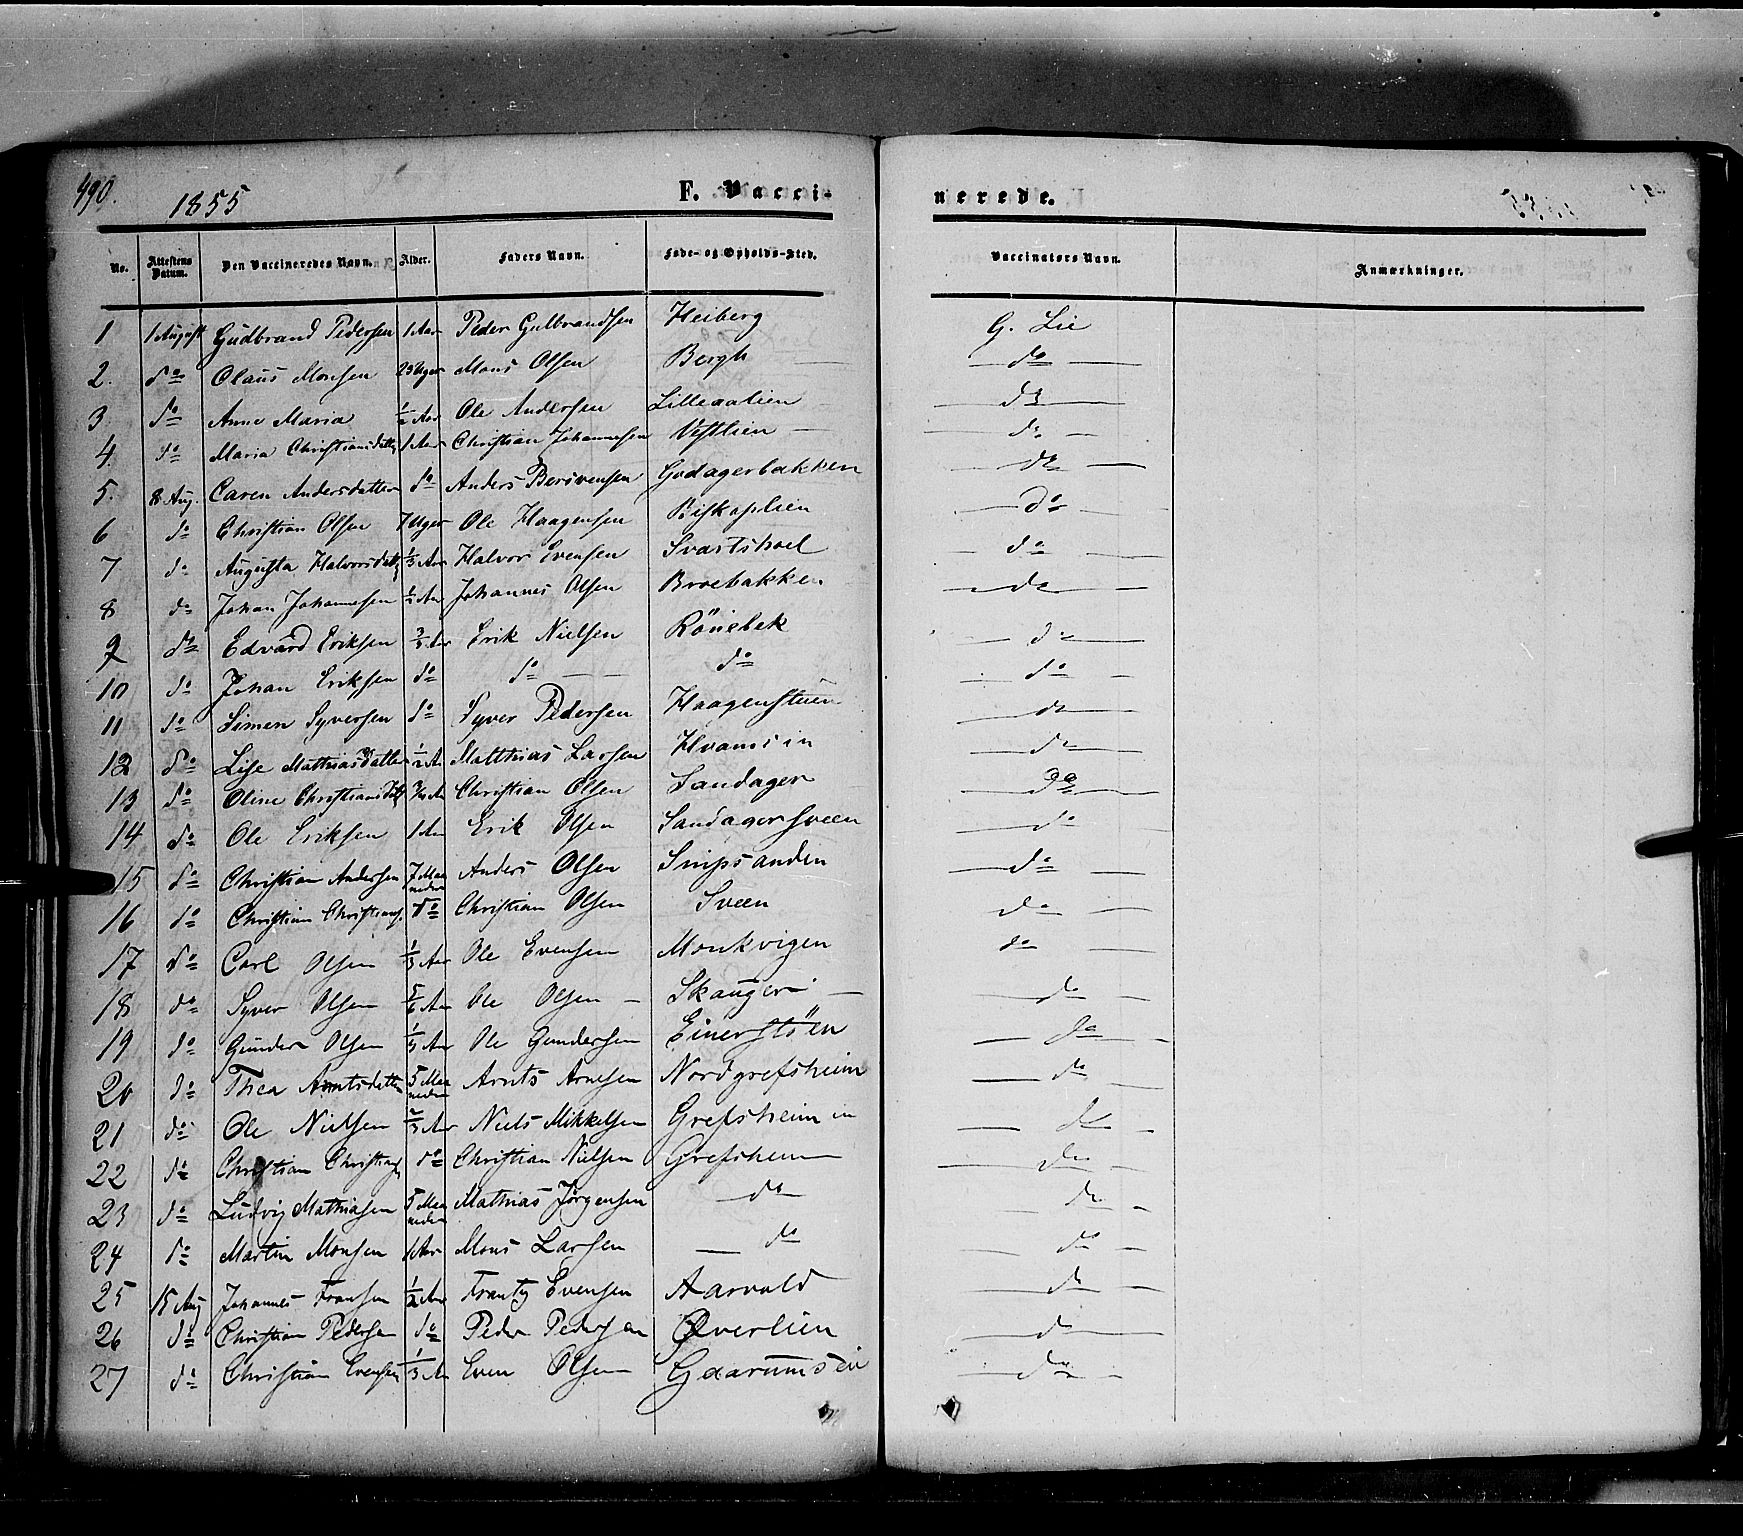 490. 1855 F. Vacci- nerede.
No. Attestens Datum. Den Vaccineredes Navn. Alder. Faders Navn. Føde- og Opholds-Sted. Vaccinators Navn. Anmærkninger.
1 1 August Gudbrand Pedersen 1 Aar Peder Gulbrandsen Heiberg G. Lie
2. do Olaus Monsen 23 Uger Mons Olsen Bergh do
3. do Anne Maria 1/2 Aar Ole Andersen Lilleaalien do
4. do Maria Christiansdatter 1 Aar Christian Johannesen Vestlien do
5. 8 Aug. Caren Andersdatter do Anders Bersvensen Godagerbakken do
6 do Christian Olsen 7 Uger Ole Haagensen Biskoplien do
7 do Augusta Halvorsdatt 1/3 Aar Halvor Evensen Svartshoel do
8 do Johan Johannesen 1/2 Aar Johannes Olsen Broebakken do
9 do Edvard Eriksen 3/3 Aar Erik Nielsen Rönebek do
10 do Johan Eriksen do do do do
11 do Simen Syversen do Syver Pedersen Haagenstuen do
12 do Lise Mathiasdatter 1/2 A Matthias Larsen Hvamsin do
13 do Oline Christiansdatt Christian Olsen Sandager do
14 do Ole Eriksen 1 Aar Erik Olsen Sandagersveen do
15 do Christian Andersen 7 Maaneder Anders Olsen Snipsanden do
16 do Christian Christians. do Christian Olsen Sveen do
17 do Carl Olsen 1/3 Aar Ole Evensen Monkvigen do
18 do Syver Olsen 5/6 Aar Ole Olsen Skaugen do
19 do Gunder Olsen 1/3 Aar Ole Gundersen Einerstöen do
20 do Thea Arntsdatter 5 Maaneder Arnts Arnesen Nordgrefsheim do
21 do Ole Nielsen 2/3 Aar Niels Mikkelsen Grefsheim in do
22 do Christian Christians do Christian Nielsen Grefsheim do
23 do Ludvig Mathiasen 5 Maaneder Mathias Jørgensen do do
24 do Martin Monsen 1 Aar Mons Larsen do do
25 15 Aug Johannes Fransen 1/2 Aar Frantz Evensen Aarvold do
26 do Christian Pedersen do Peder Pedersen Øverlien do
27 do Christian Evensen 1/3 A Even Olsen Gaarumsei do